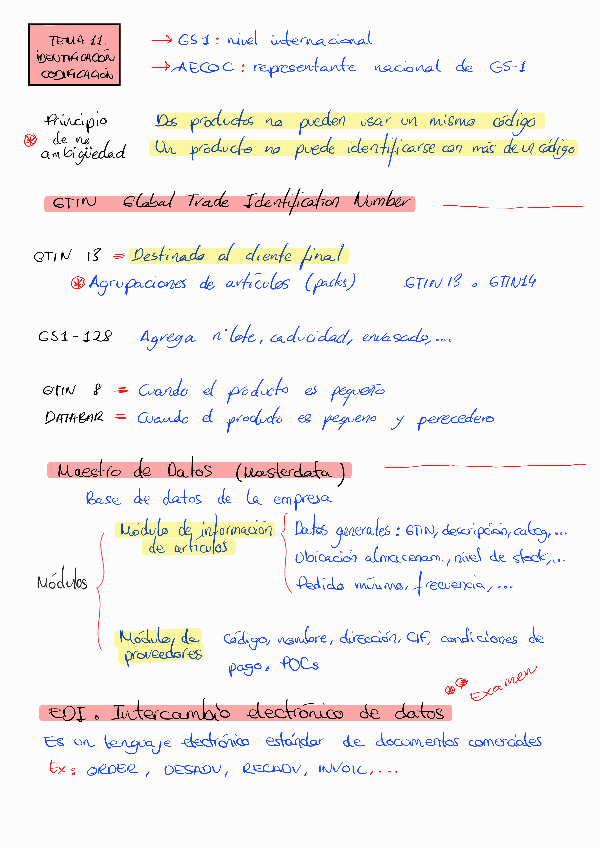 TEMA 11.
IDENTIFICACIÓN
CODIFICACIÓN
→ GS1: nivel internacional
→ AECOC: representante nacional de GS-1
Principio
de no
ambigüedad
Dos productos no pueden usar un mismo código
Un producto no puede identificarse con más de un código
GTIN Global Trade Identification Number
GTIN 13 = Destinado al cliente final
Agrupaciones de artículos (packs) GTIN 13 o GTIN14
GS1-128 Agrega nº lote, caducidad, envasado,...
GTIN 8 = Cuando el producto es pequeño
DATABAR = Cuando el producto es pequeno y perecedero
Maestro de Datos (Masterdata)
Base de datos de la empresa
Módulos
Módulo de información
de artículos
Datos generales: GTIN, descripción, categ,...
Ubicación almacenam., nivel de stock,...
Pedido mínimo, frecuencia,...
Módulo, de
proveedores
Código, nombre, dirección, CIF, condiciones de
pago, POCs
Examen
EDI. Intercambio electrónico de datos
Es un lenguaje electrónico estándar de documentos comerciales
Ex: ORDER, DESADV, RECADV, INVOIC,...